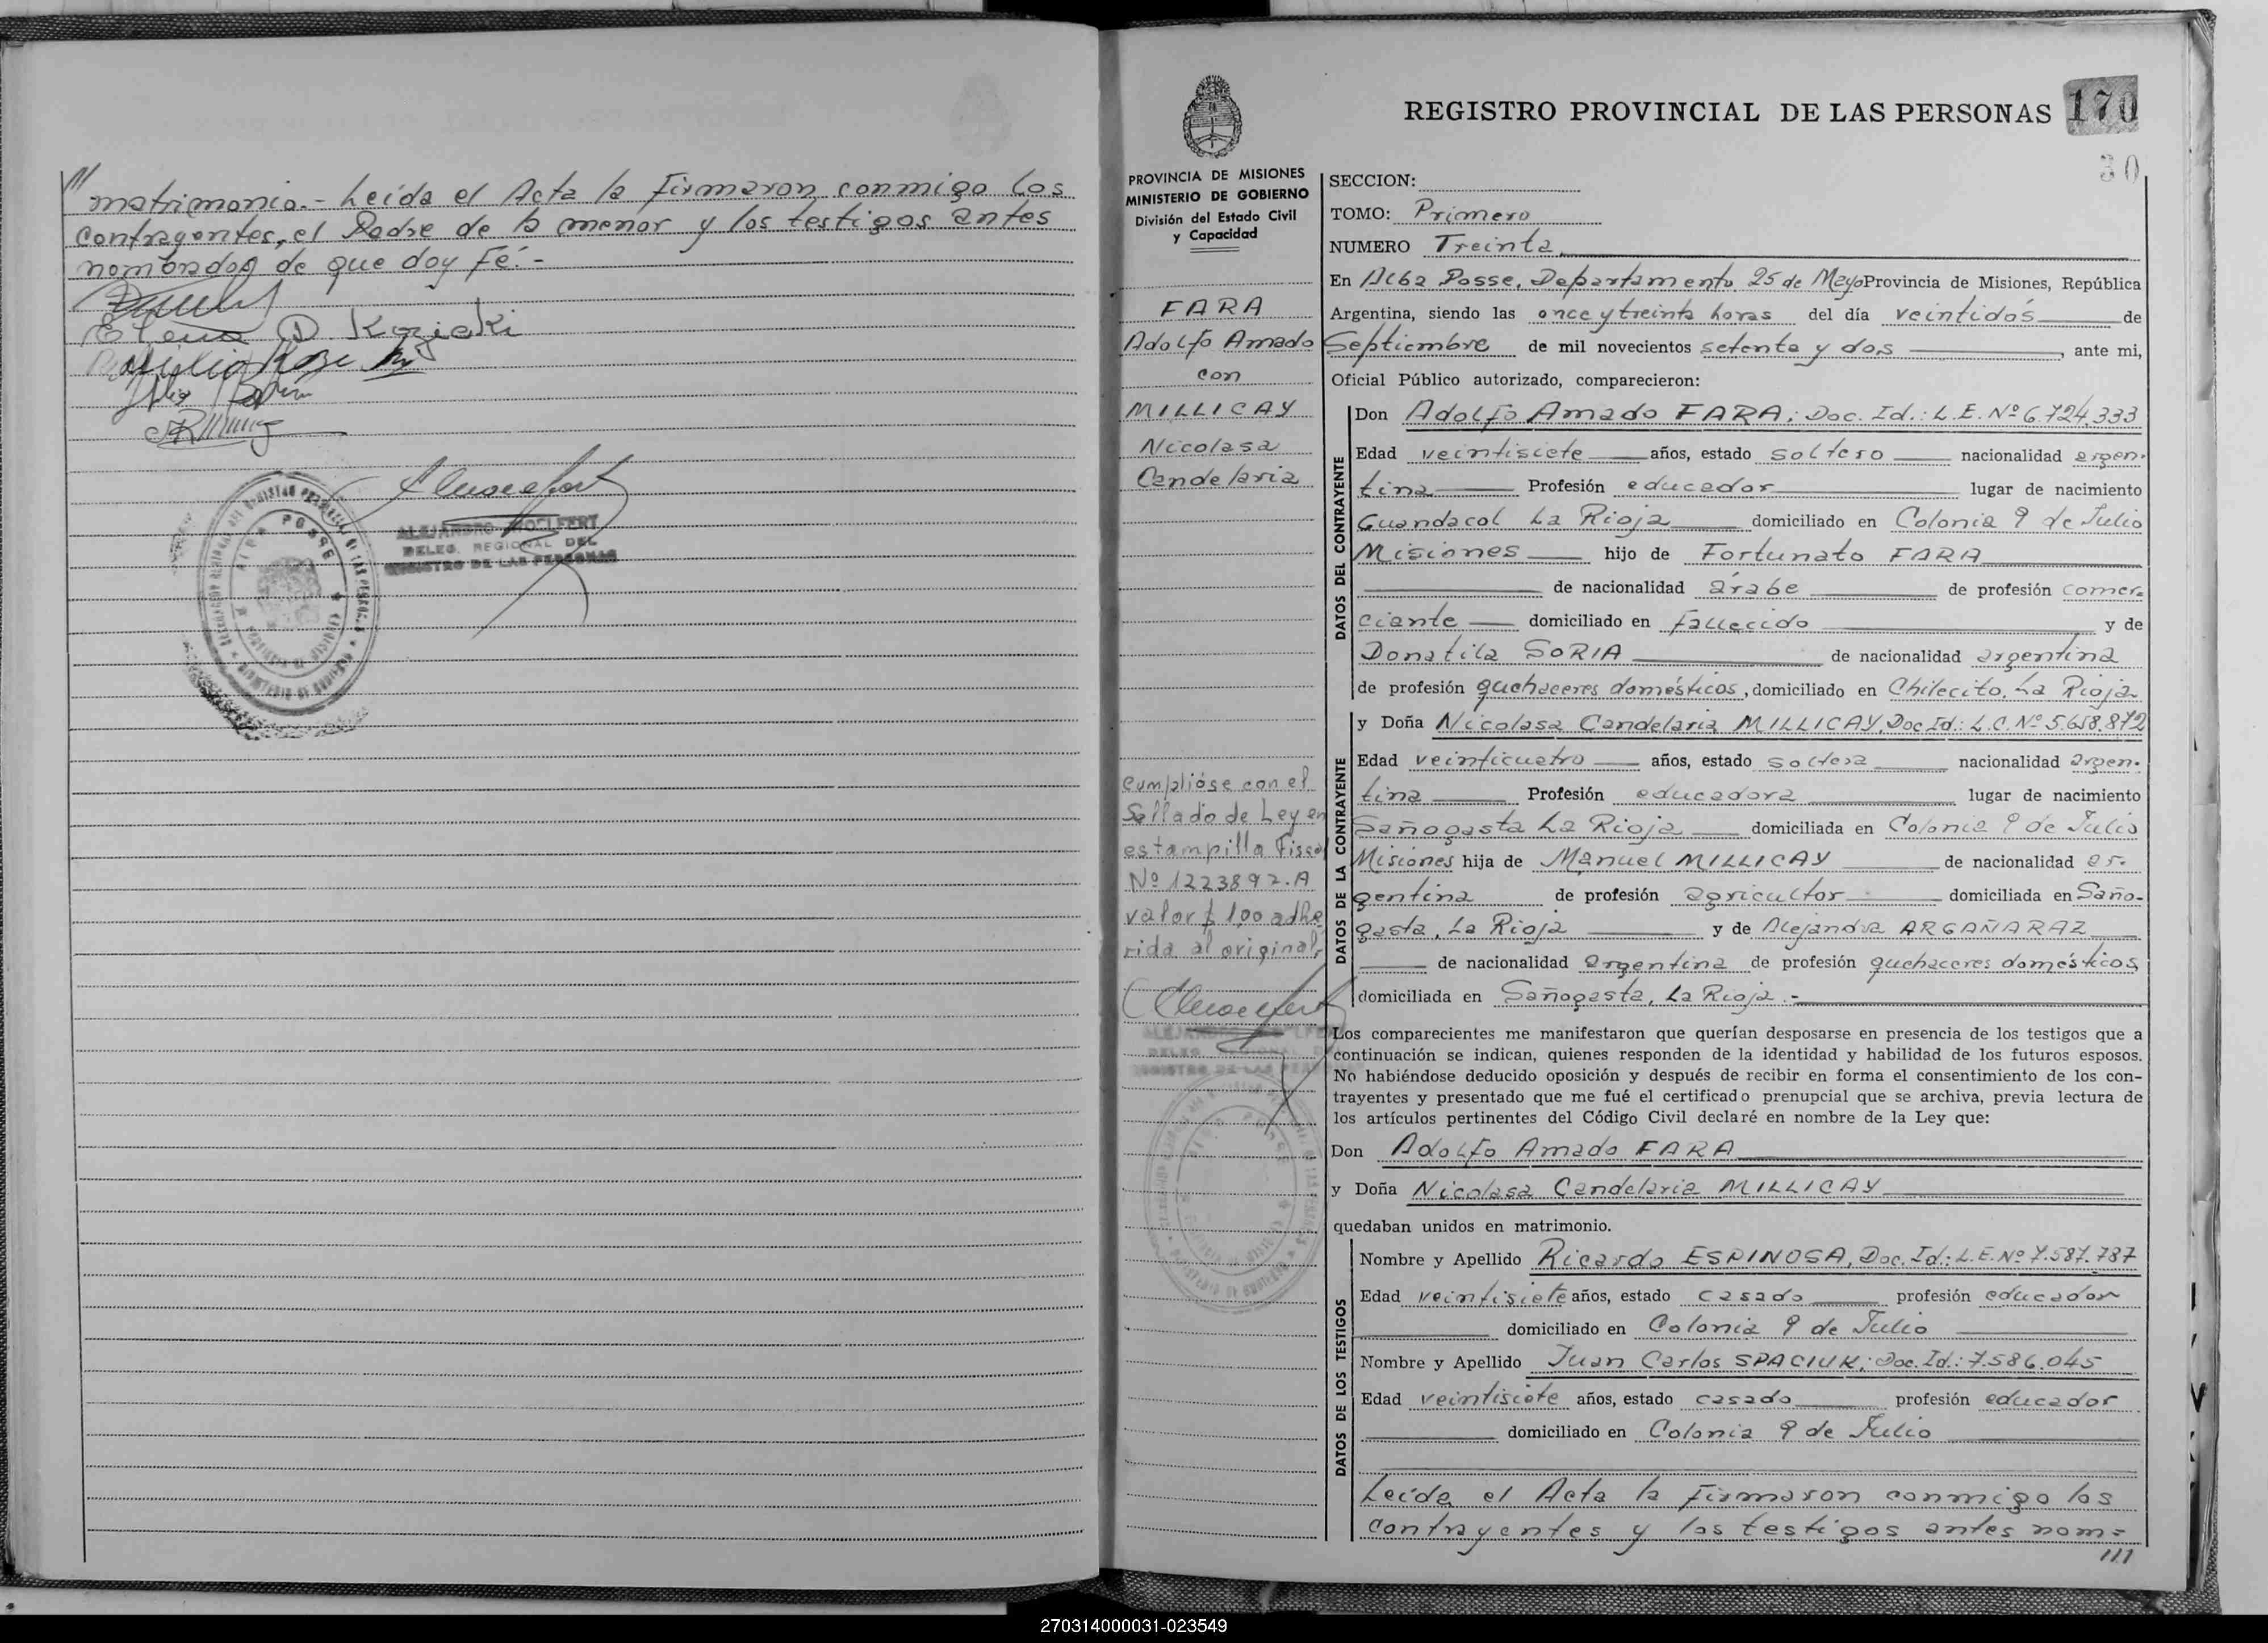 /// matrimonio.- Leída el Acta la Firmaron conmigo los
contrayentes, el Padre de la menor y los testigos antes
nombrados de que doy Fé.-
Elena D. Kozicki
ALEJANDRO
DELEG. REGIONAL DEL
REGISTRO DE LAS PERSONAS
REGISTRO PROVINCIAL DE LAS PERSONAS 170
30
PROVINCIA DE MISIONES
MINISTERIO DE GOBIERNO
División del Estado Civil
y Capacidad
FARA
Adolfo Amado
con
MILLICAY
Nicolasa
Candelaria
Cumplióse con el
Sellado de Ley en
estampilla Fiscal
Nº 1223892.A
valor $ 1,00 adhe
rida al original,
SECCION:
TOMO: Primero
NUMERO Treinta
En Alba Posse, Departamento 25 de Mayo Provincia de Misiones, República
Argentina, siendo las once y treinta horas del día veintidós de
Septiembre de mil novecientos setenta y dos, ante mi,
Oficial Público autorizado, comparecieron:
DATOS DEL CONTRAYENTE
Don Adolfo Amado FARA; Doc. Id.: L.E. Nº 6.724.333
Edad veintisiete años, estado soltero nacionalidad argen-
tina Profesión educador lugar de nacimiento
Guandacol La Rioja domiciliado en Colonia 9 de Julio
Misiones hijo de Fortunato FARA
de nacionalidad árabe de profesión comer=
ciante domiciliado en Fallecido y de
Donatila SORIA de nacionalidad argentina
de profesión quehaceres domésticos, domiciliado en Chilecito, La Rioja
DATOS DE LA CONTRAYENTE
y Doña Nicolasa Candelaria MILLICAY, Doc Id.: L.C. Nº 5.658.872
Edad veinticuatro años, estado soltera nacionalidad argen-
tina Profesión educadora lugar de nacimiento
Sañogasta La Rioja domiciliada en Colonia 9 de Julio
Misiones hija de Manuel MILLICAY de nacionalidad ar-
gentina de profesión agricultor domiciliada en Saño-
gasta, La Rioja y de Alejandra ARGAÑARAZ
de nacionalidad argentina de profesión quehaceres domésticos,
domiciliada en Sañogasta, La Rioja.-
Los comparecientes me manifestaron que querían desposarse en presencia de los testigos que a
continuación se indican, quienes responden de la identidad y habilidad de los futuros esposos.
No habiéndose deducido oposición y después de recibir en forma el consentimiento de los con-
trayentes y presentado que me fué el certificado prenupcial que se archiva, previa lectura de
los artículos pertinentes del Código Civil declaré en nombre de la Ley que:
Don Adolfo Amado FARA
y Doña Nicolasa Candelaria MILLICAY
quedaban unidos en matrimonio.
DATOS DE LOS TESTIGOS
Nombre y Apellido Ricardo ESPINOSA, Doc. Id.: L.E. Nº 7.587.787
Edad veintisiete años, estado casado profesión educador
domiciliado en Colonia 9 de Julio
Nombre y Apellido Juan Carlos SPACIUK; Doc. Id.: 7.586.045
Edad veintisiete años, estado casado profesión educador
domiciliado en Colonia 9 de Julio
Leída el Acta la Firmaron conmigo los
contrayentes y los testigos antes nom=
///
270314000031-023549